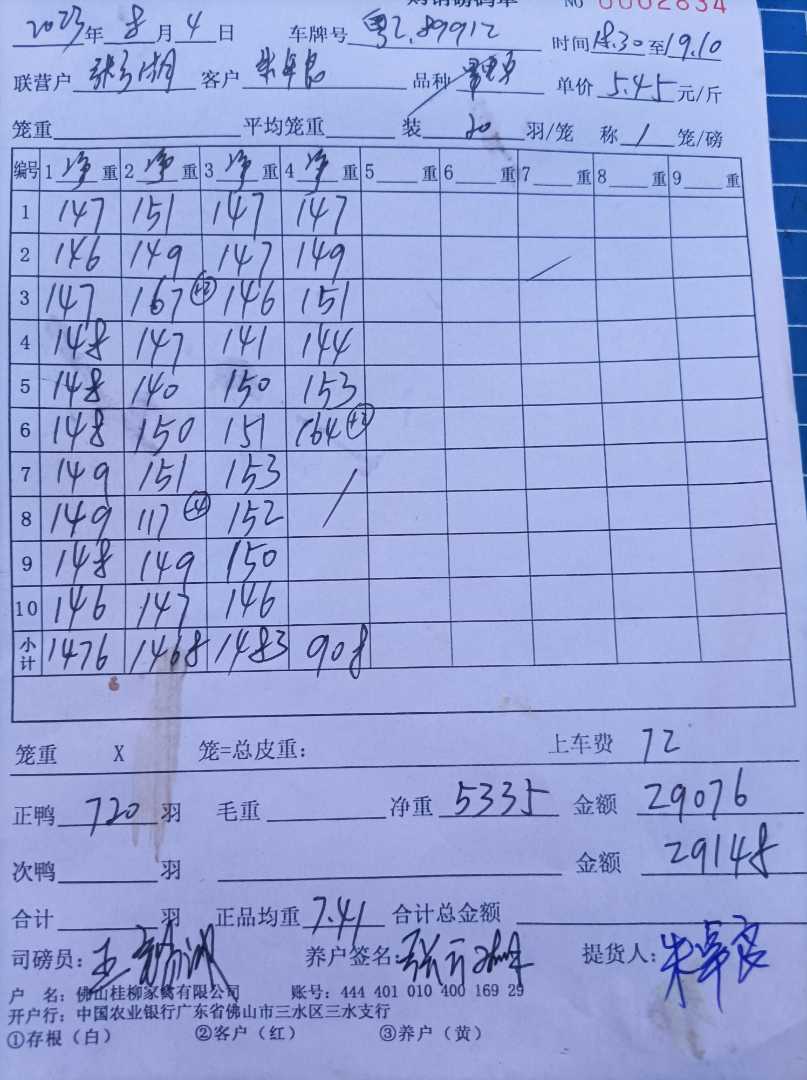 购销磅码单 № 0002834
2023年 8月 4日 车牌号 粤Z.89912 时间18.30至19.10
联营户 客户 朱军良 品种 单价 5.45 元/斤
笼重 平均笼重 装 20 羽/笼 称 1 笼/磅
编号 1 净 重 2 净 重 3 净 重 4 净 重 5 重 6 重 7 重 8 重 9 重
1 147 151 147 147
2 146 149 147 149
3 147 167 +2 146 151
4 148 147 141 144
5 148 140 150 153
6 148 150 151 164 +2
7 149 151 153
8 149 117 -4 152
9 148 149 150
10 146 147 146
小计 1476 1468 1483 908
笼重 X 笼=总皮重: 上车费 72
正鸭 720 羽 毛重 净重 5335 金额 29076
次鸭 羽 金额 29148
合计 羽 正品均重 7.41 合计总金额
司磅员: 养户签名: 提货人: 朱军良
户 名: 佛山桂柳家禽有限公司 账号: 444 401 010 400 169 29
开户行: 中国农业银行广东省佛山市三水区三水支行
①存根(白) ②客户(红) ③养户(黄)